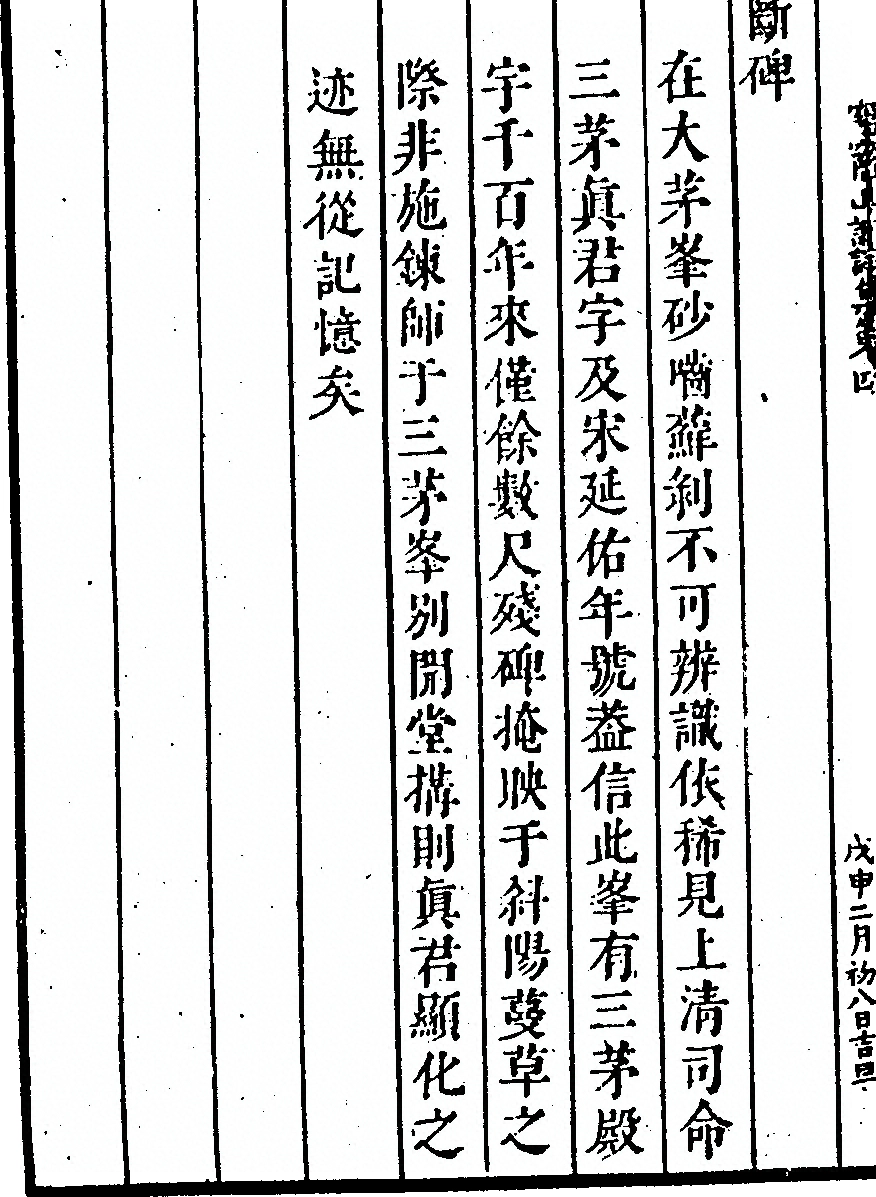 戊申二月初八日吉旦
斷碑
在大茅峯砂嚙蘚剝不可辨識依稀見上清司命
三茅眞君字及宋延佑年號葢信此峯有三茅殿
宇千百年來僅餘數尺殘碑掩映于斜陽蔓草之
際非施鍊師于三茅峯別開堂搆則眞君顯化之
迹無從記憶矣